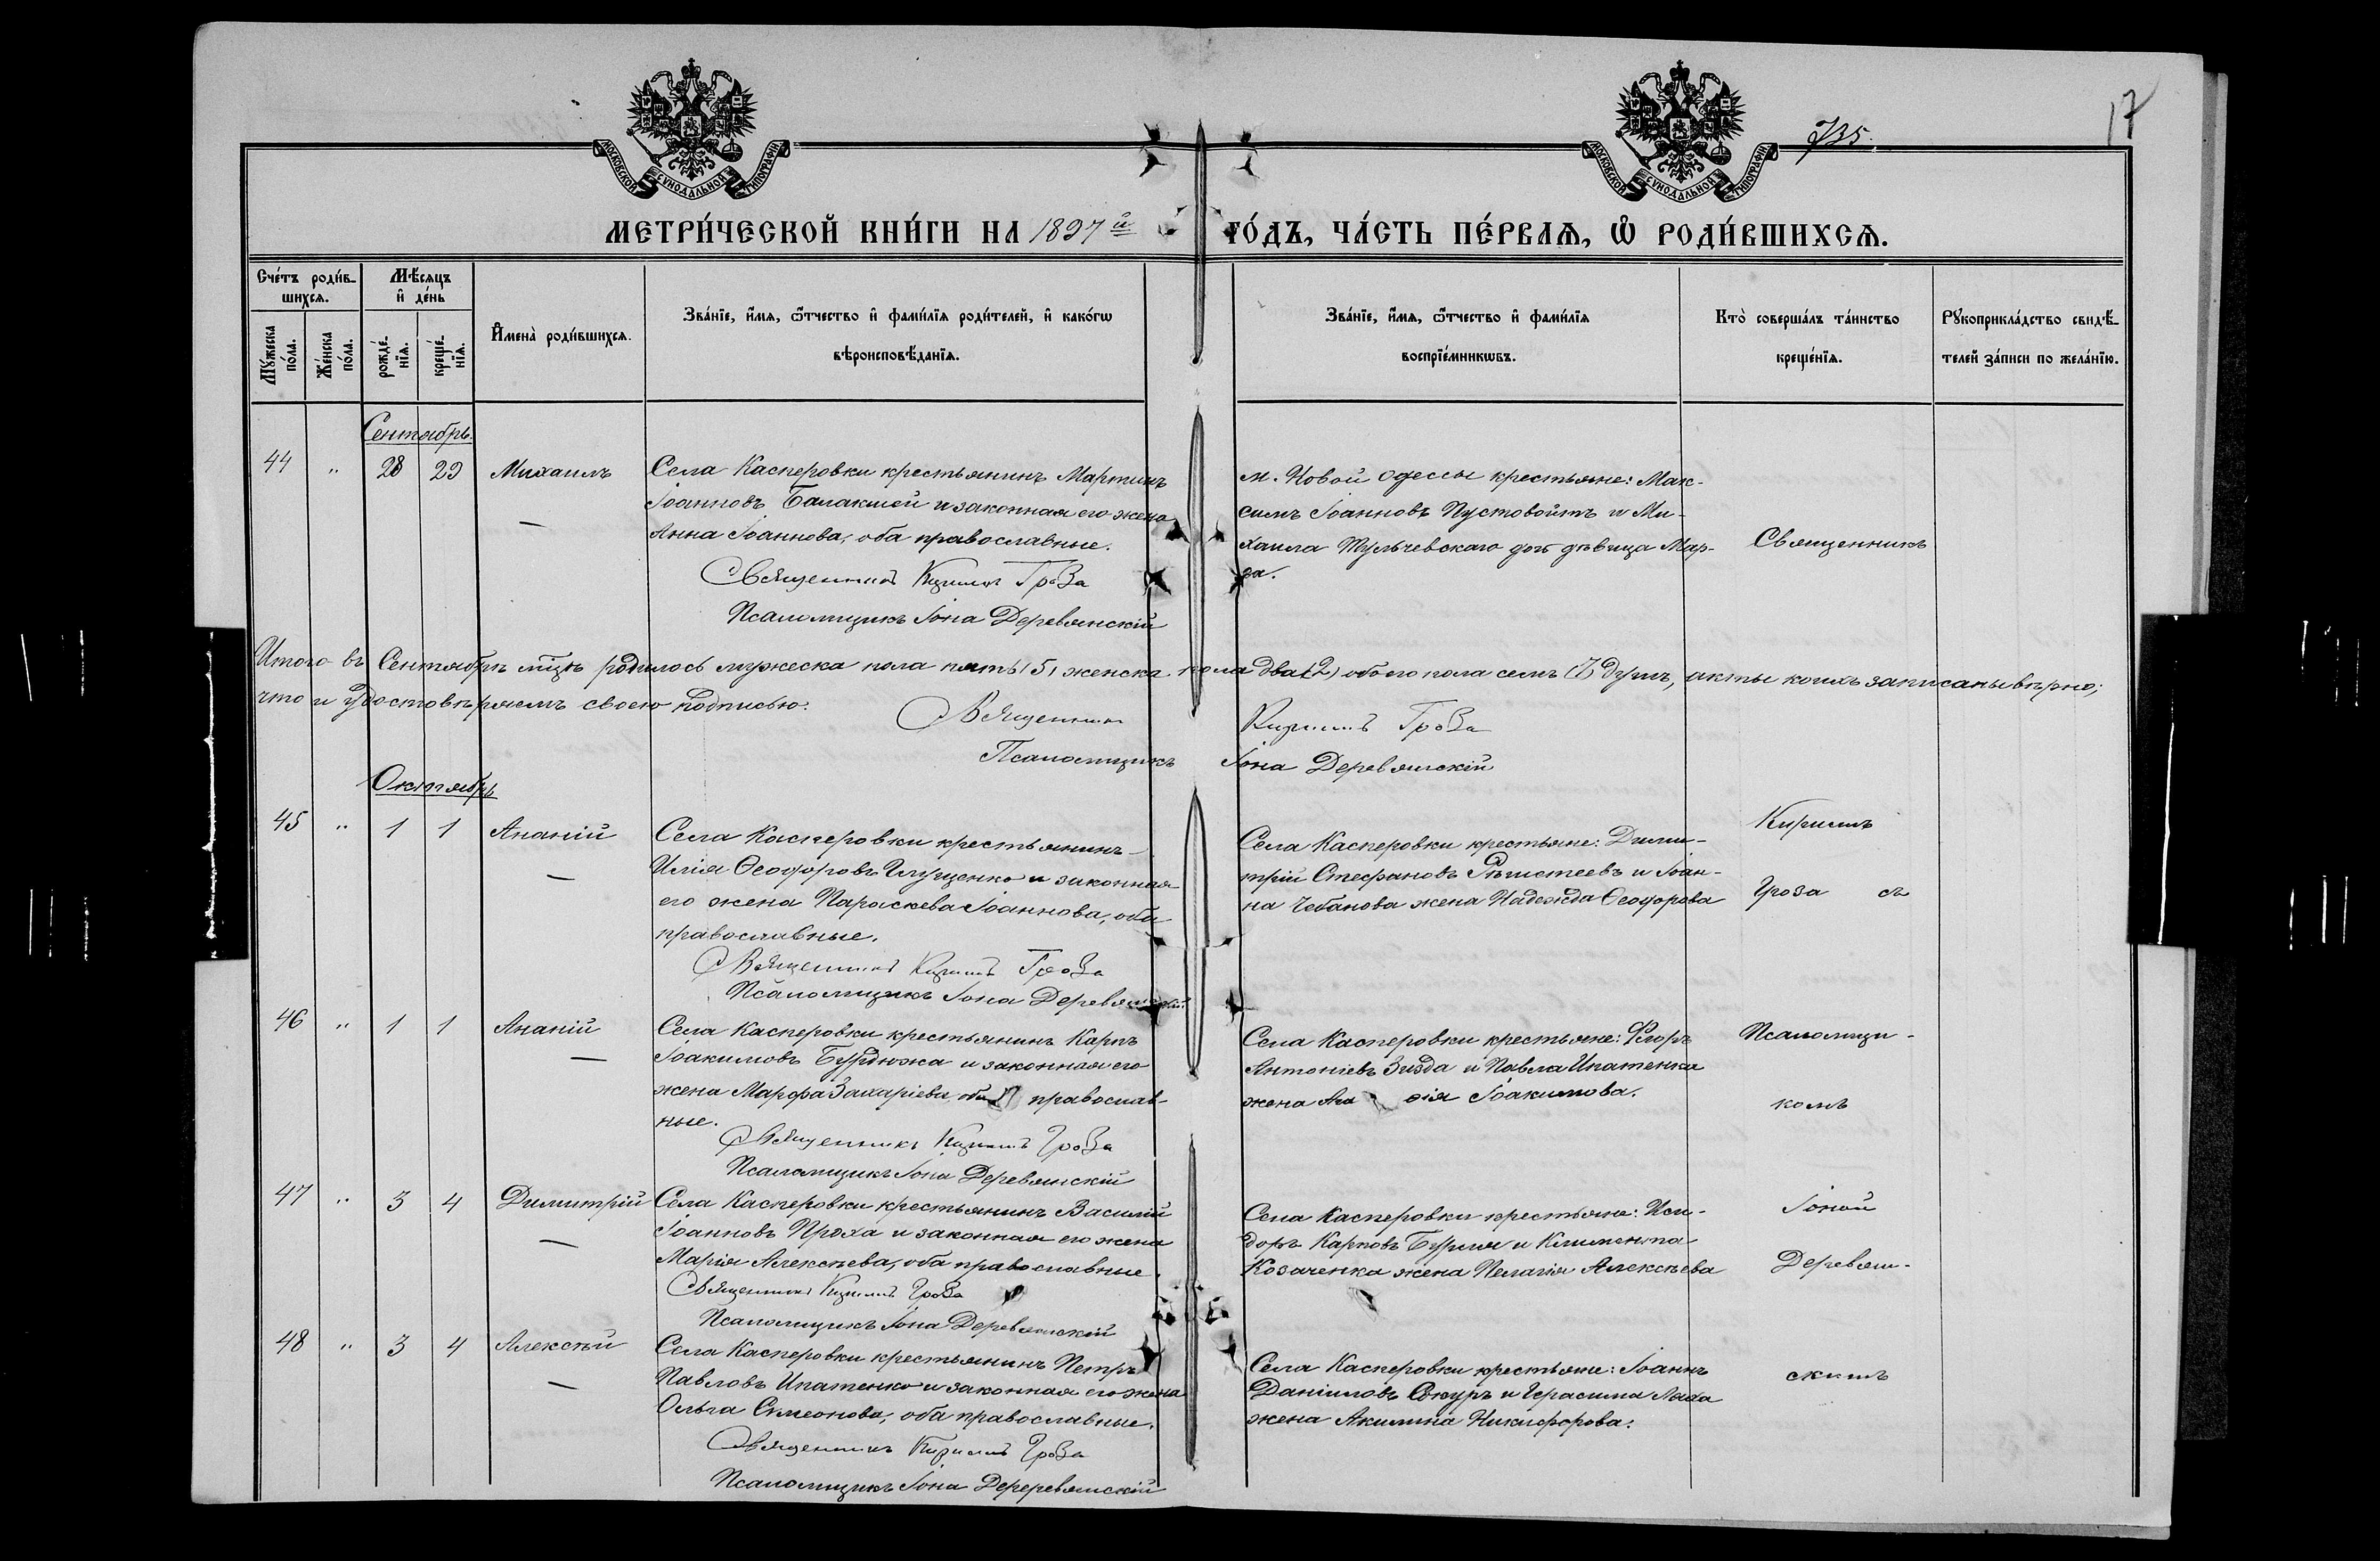 735.
17
МОСКОВСКОЙ СѴНОДАЛЬНОЙ ТИПОГРАФІИ
МОСКОВСКОЙ СѴНОДАЛЬНОЙ ТИПОГРАФІИ
МЕТРИ́ЧЕСКОЙ КНИ́ГИ НА 1897й ГО́ДЪ, ЧА́СТЬ ПЕ́РВАѦ, Ѡ РОДИ́ВШИХСѦ.
Сче́тъ роди́в-
шихсѧ.
Мѣ́сѧцъ
и де́нь
Мꙋ́жеска по́ла.
Же́нска по́ла.
рожде́-
нїѧ.
креще́-
нїѧ.
И҆мена̀ роди́вшихсѧ.
Зва́нїе, и҆́мѧ, ѻ҆́тчество и҆ фами́лїѧ роди́телей, и҆ како́гѡ
вѣроисповѣ́данїѧ.
Зва́нїе, и҆́мѧ, ѻ҆́тчество и҆ фами́лїѧ
воспрїе́мникѡвъ.
Кто̀ соверша́лъ та́инство
креще́нїѧ.
Рꙋкоприкла́дство свидѣ́-
телей за́писи по жела́нїю.
Сентябрь.
44 " 28 29 Михаилъ
Села Касперовки крестьянинъ Мартинъ
Іоанновъ Балакшей и законная его жена
Анна Іоаннова, оба православные.
Священникъ Кириллъ Гроза
Псаломщикъ Іона Деревянскій
м. Новой Одессы крестьяне: Мак-
симъ Іоанновъ Пустовойтъ и Ми-
хаила Тульчевскаго дочь дѣвица Мар-
ѳа.
Священникъ
Итого въ Сентябрѣ мѣцѣ родилось мужеска пола пять (5) женска пола два (2) обоего пола семь (7) душъ, акты коихъ записаны вѣрно;
что и удостовѣряемъ своею подписью:
Священникъ Кириллъ Гроза
Псаломщикъ Іона Деревянскій
Октябрь
45 " 1 1 Ананій
Села Касперовки крестьянинъ
Илія Ѳеодоровъ Глущенко и законная
его жена Параскева Іоаннова, оба
православные.
Священникъ Кириллъ Гроза
Псаломщикъ Іона Деревянскій
Села Касперовки крестьяне: Дими-
трій Стефановъ и Іоан-
на Чебанова жена Надежда Ѳеодорова
Кириллъ
Гроза съ
46 " 1 1 Ананій
Села Касперовки крестьянинъ Карпъ
Іоакимовъ Бурдюжа и законная его
жена Марфа Захаріева оба православ-
ные.
Священникъ Кириллъ Гроза
Псаломщикъ Іона Деревянскій
Села Касперовки крестьяне:
Антоніевъ и Павла Ипатенка
жена Іоакимова.
Псаломщи-
комъ
47 " 3 4 Димитрій
Села Касперовки крестьянинъ Василій
Іоанновъ Проха и законная его жена
Марія Алексѣева, оба православные.
Священникъ Кириллъ Гроза
Псаломщикъ Іона Деревянскій
Села Касперовки крестьяне: Иси-
доръ Карповъ и Климента
Козаченка жена Пелагія Алексѣева
Іоной
Деревян-
48 " 3 4 Алексѣй
Села Касперовки крестьянинъ Петръ
Павловъ Ипатенко и законная его жена
Ольга Симеонова, оба православные.
Священникъ Кириллъ Гроза
Псаломщикъ Іона Дереревянскій
Села Касперовки крестьяне: Іоаннъ
Даніиловъ и Герасима
жена Акилина Никифорова.
скимъ